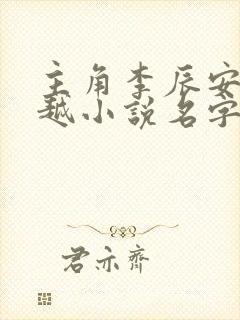 主角李辰安
越小說名字
君亦齊